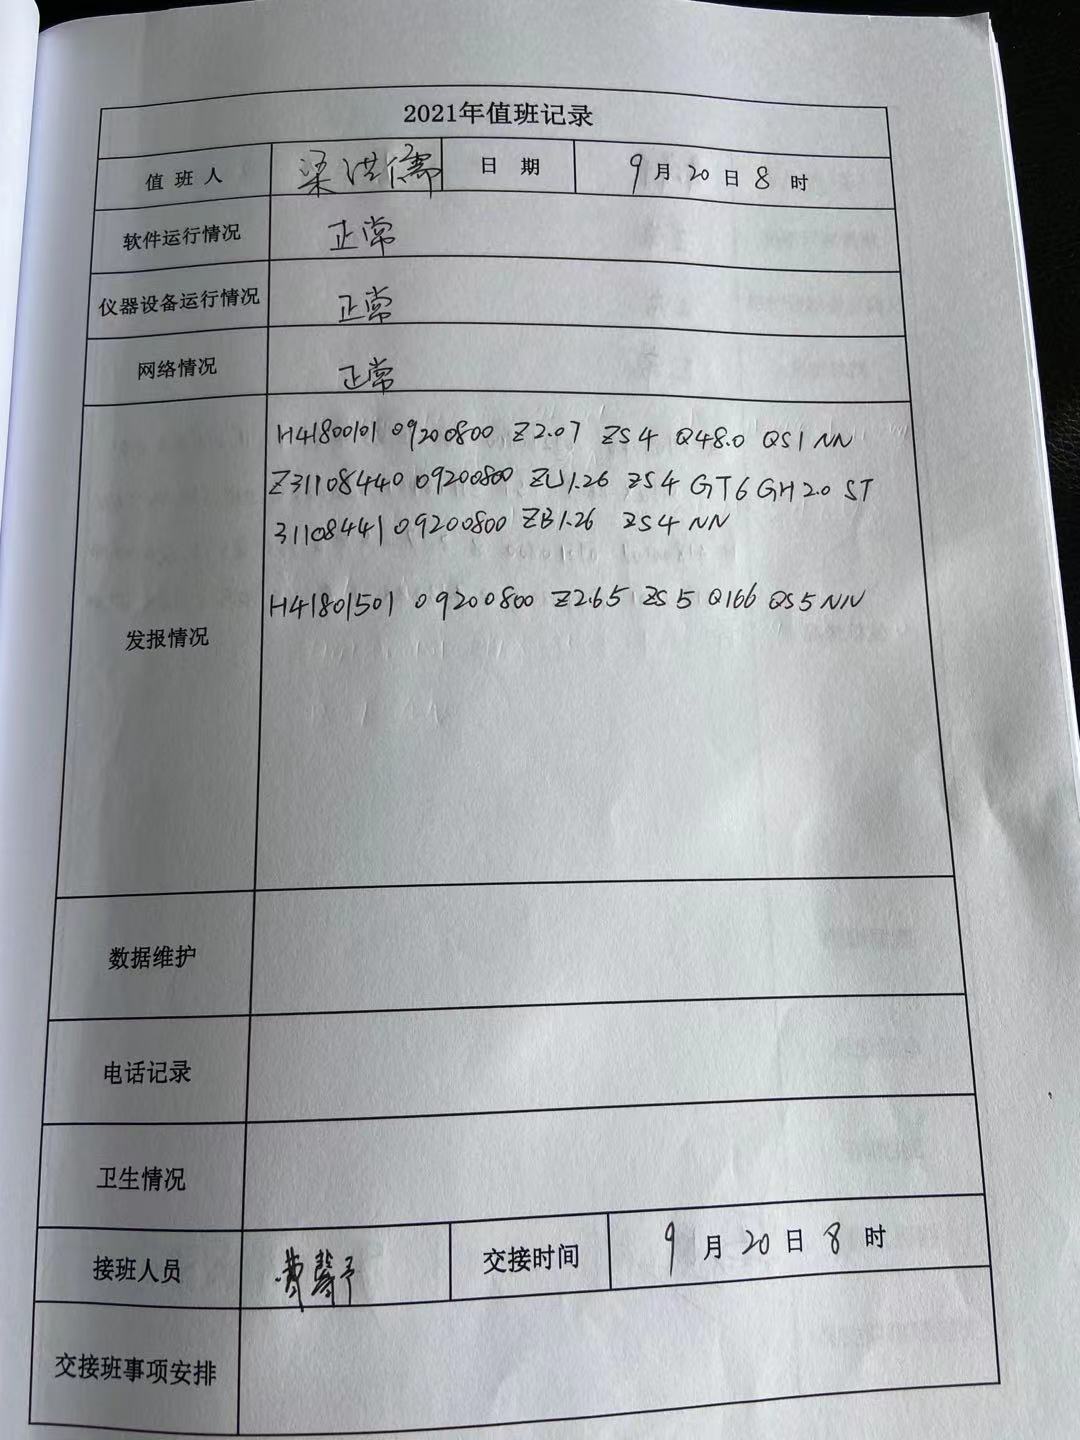 2021年值班记录
值班人 梁洪儒 日期 9月20日8时
软件运行情况 正常
仪器设备运行情况 正常
网络情况 正常
发报情况
H41800101 09200800 Z2.07 ZS4 Q48.0 QS1 NN
Z31108440 09200800 ZU1.26 ZS4 GT6 GH2.0 ST
31108441 09200800 ZB1.26 ZS4 NN
H41801501 09200800 Z2.65 ZS5 Q166 QS5 NN
数据维护
电话记录
卫生情况
接班人员 交接时间 9月20日8时
交接班事项安排